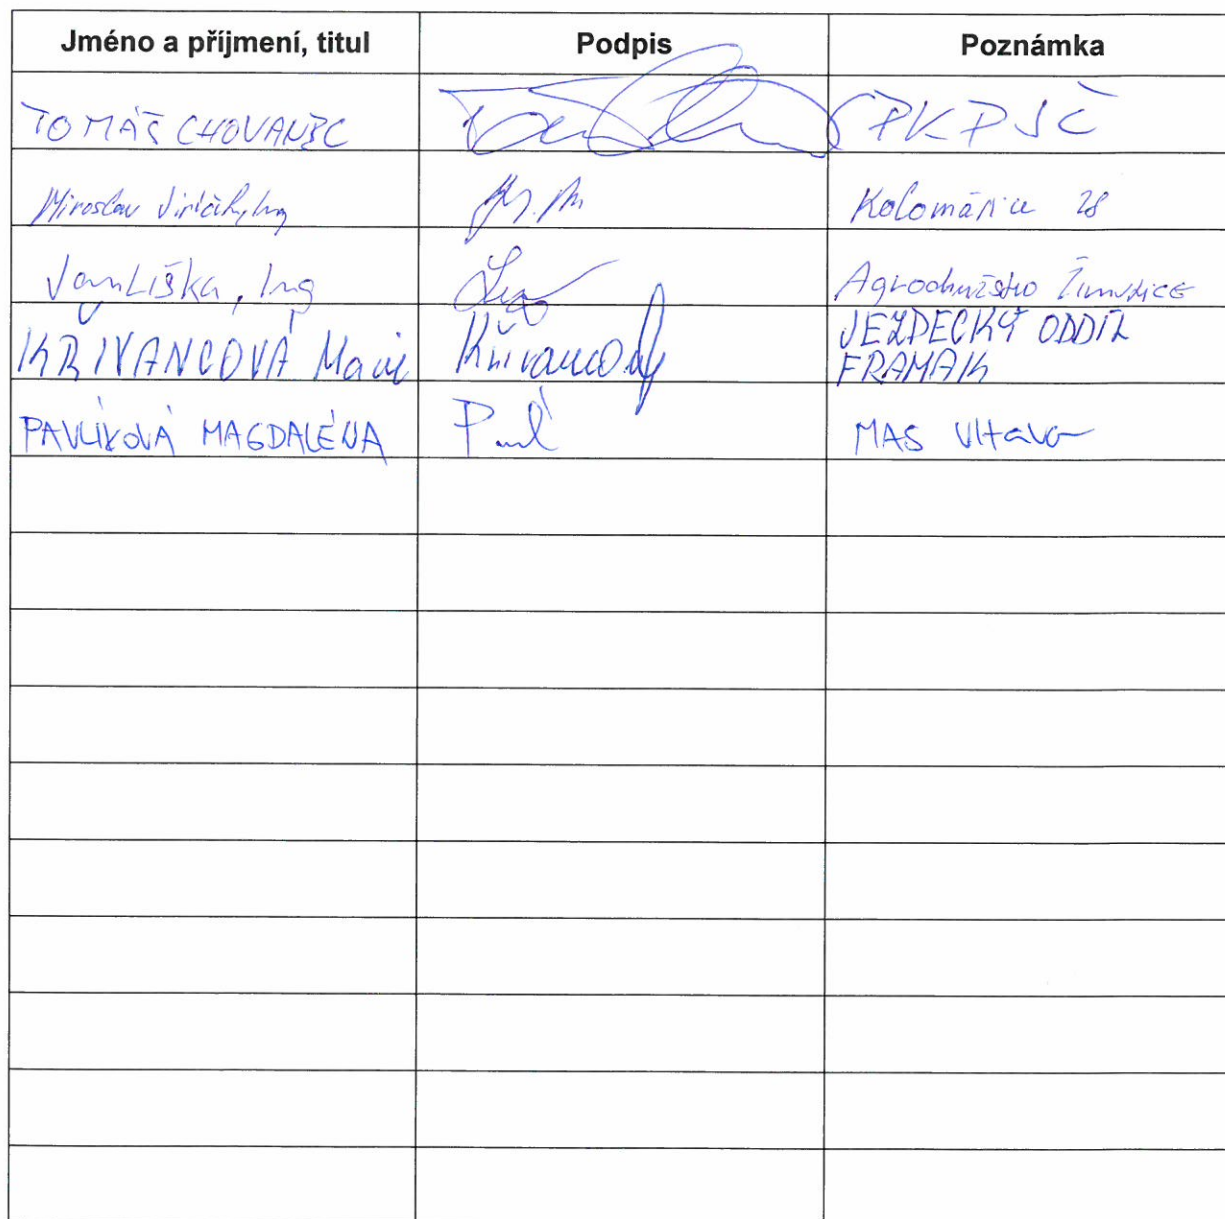 Jméno a příjmení, titul Podpis Poznámka
TOMÁŠ CHOVANEC
Miroslav Ing
Jan Liška, Ing Agrodružstvo Zimutice
KŘIVANCOVÁ Marie Křivancová JEZDECKÝ ODDÍL
FRAMAK
PAVLÍKOVÁ MAGDALÉNA MAS Vltava